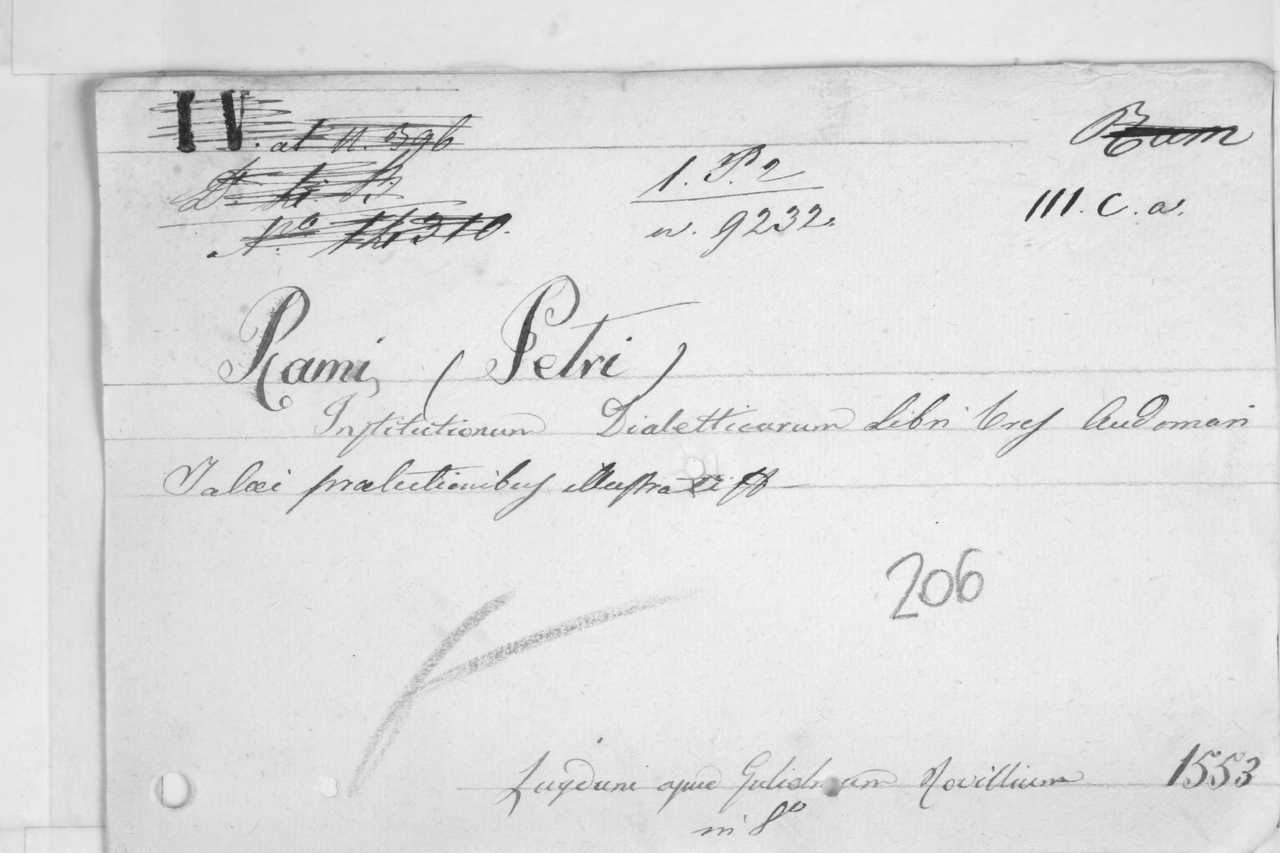 IV. at n. 396
D. ti. B.
No 14310.
1. P. 2
n. 9232.
Ram
III. C. a.
Rami, (Petri)
Institutionum Dialetticarum Libri tres Audomari
Talæi prælectionibus illustrati
206
Lugduni apud Gulielmum Rovillium 1553
in 8º